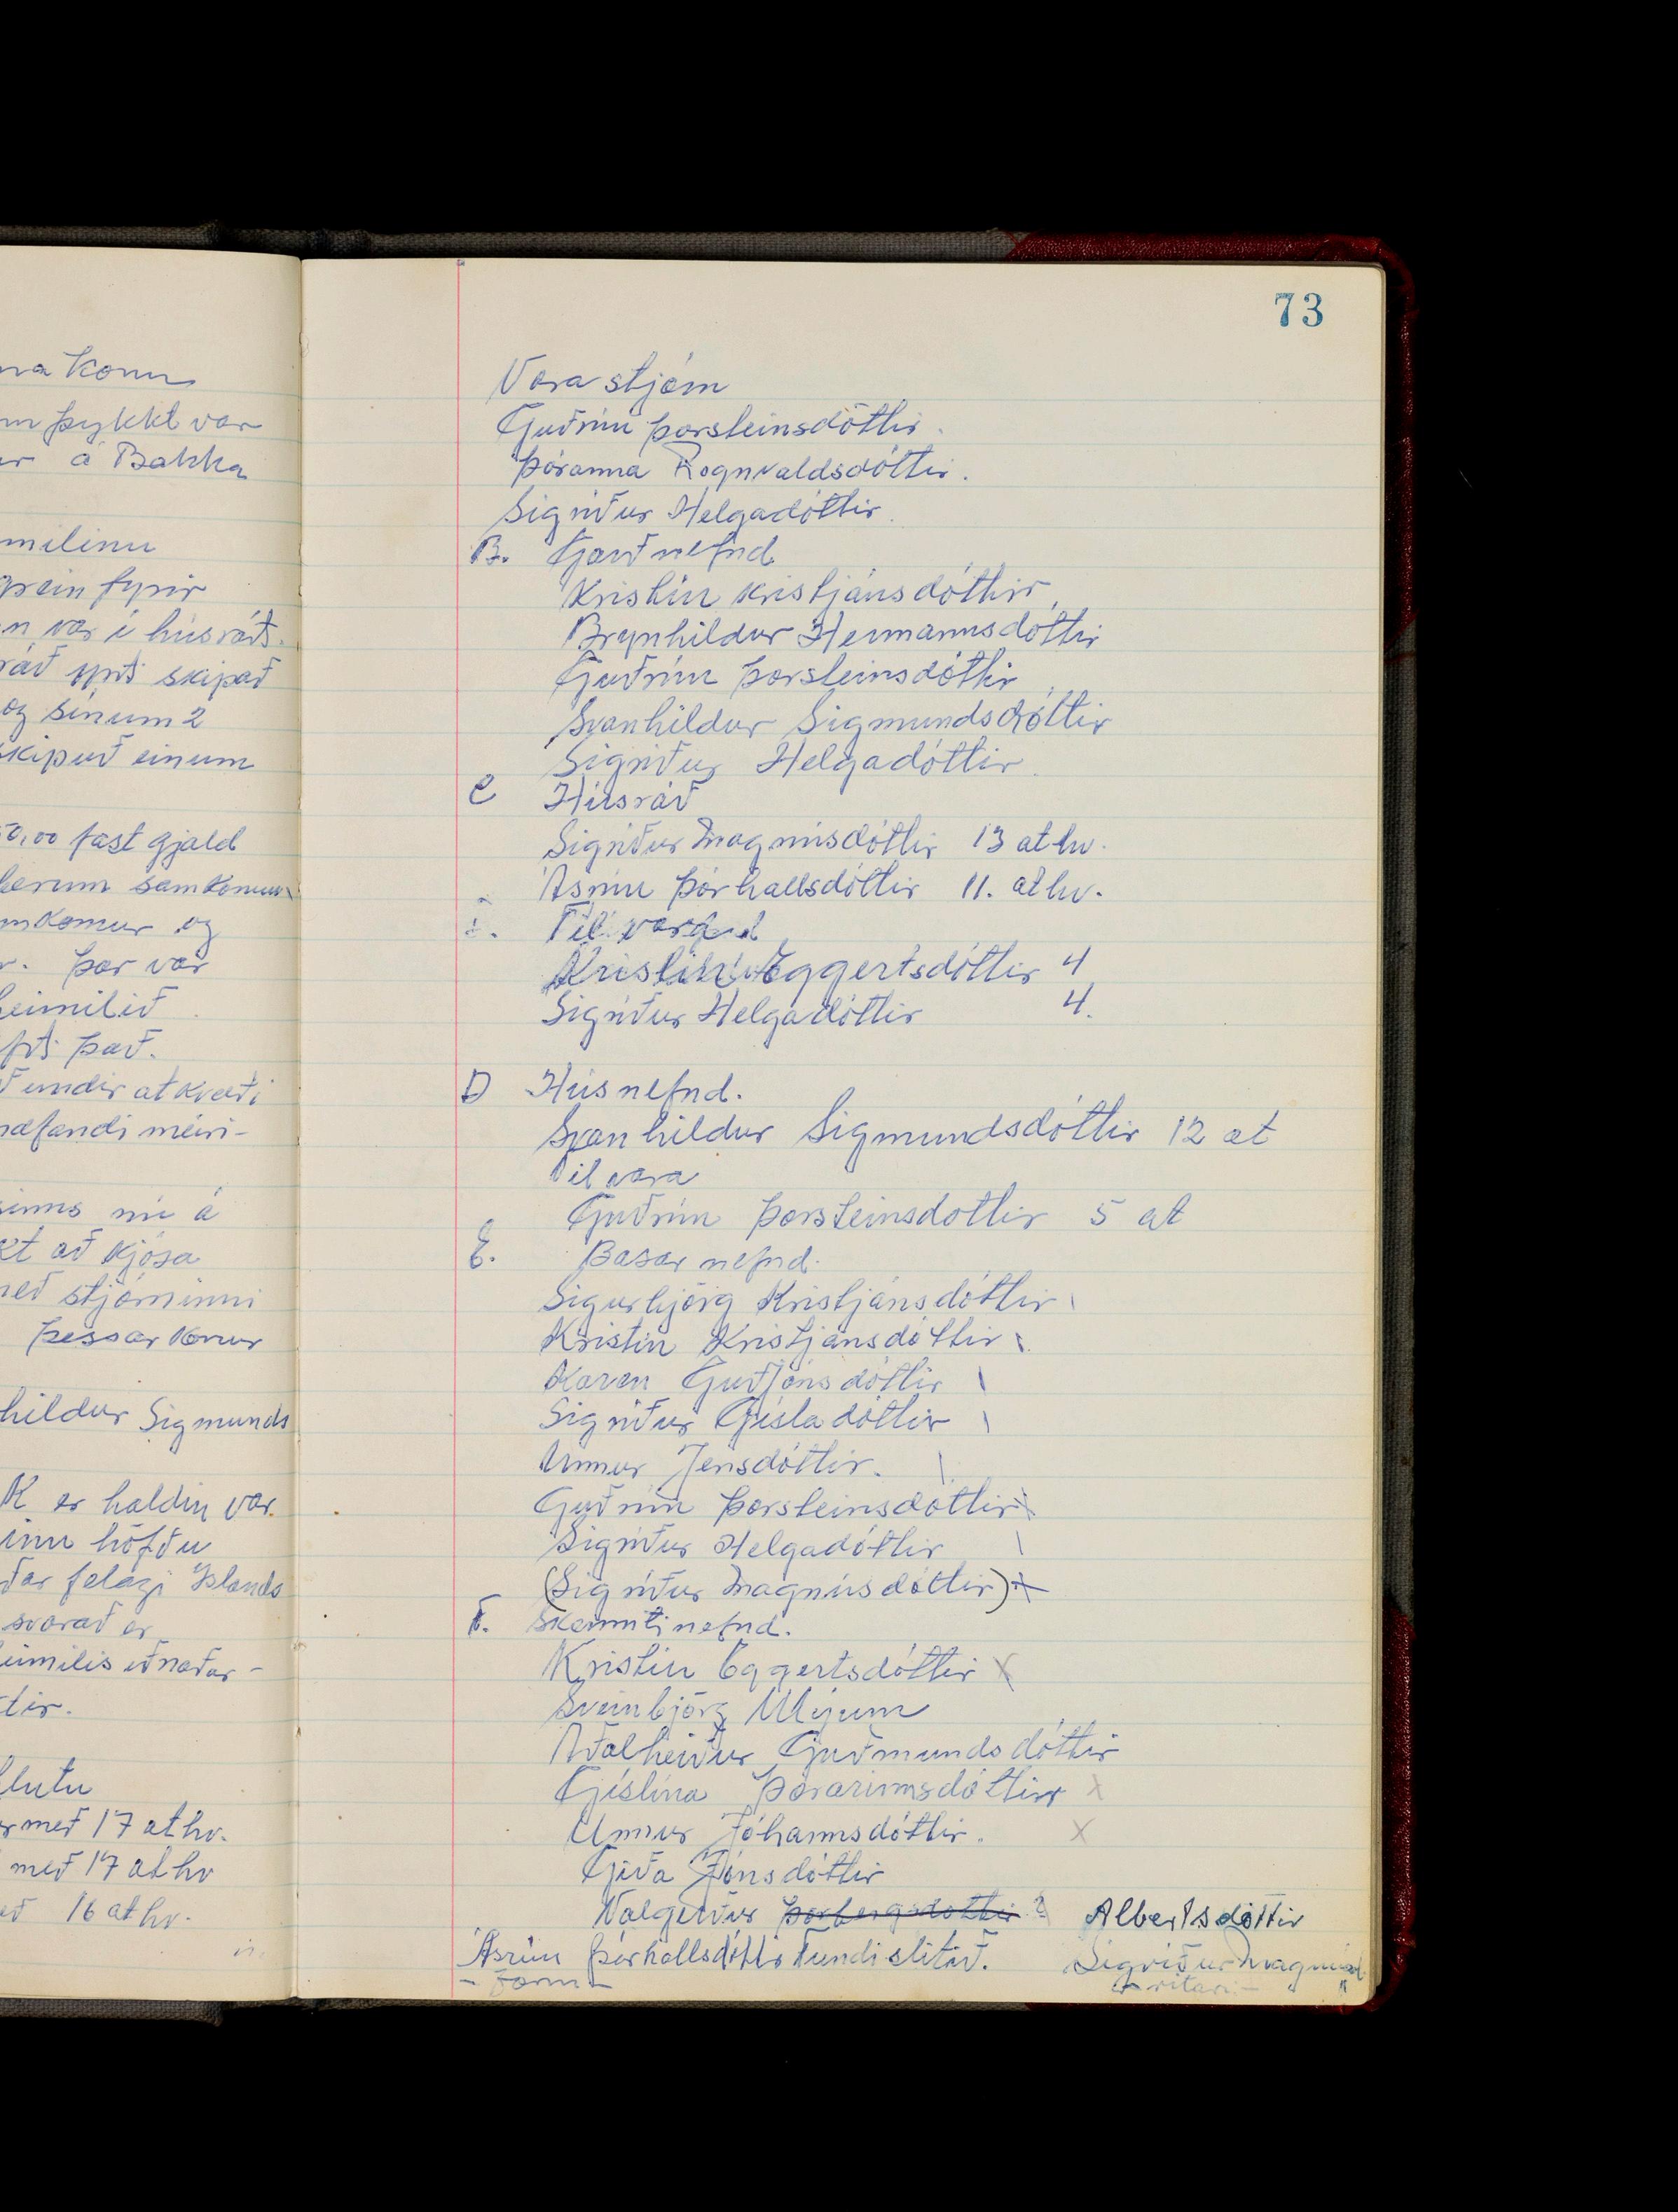 na Konu
m þykkt var
er á Bakka
milinu
grein fyrir
n var í húsráð.
ráð yrði skipað
og sínum 2
skipuð einum
50,00 fast gjald
berum samkomum
mkomur og
r. þar var
heimilið
það.
undir atkvæði
hafandi meiri-
sinns nú á
kt að kjósa
með stjórninni
þessar Konur
hildur Sigmunds
K er haldin var.
inu höfðu
ðar felagi Islands
svarað er
heimilis iðnaðar-
tir.
hlutu
er með 17 athv.
með 17 athv
eð 16 athv.
73
Vara stjórn
Guðrún Þorsteinsdóttir.
Þóranna Rögnvaldsdóttir.
Sigríður Helgadóttir.
B. Garðnefnd
Kristín Kristjánsdóttir,
Brynhildur Hermannsdóttir
Guðrún Þorsteinsdóttir
Svanhildur Sigmundsdóttir
Sigríður Helgadóttir.
C Húsráð
Sigríður Magnúsdóttir 13 athv.
Ásrún Þórhallsdóttir 11. athv.
Til vara
Kristín Eggertsdóttir 4
Sigríður Helgadóttir 4.
D Húsnefnd.
Svanhildur Sigmundsdóttir 12 at
Til vara
Guðrún Þorsteinsdottir 5 at
E. Basar nefnd.
Sigurbjörg Kristjánsdóttir \
Kristín Kristjánsdóttir \
Karen Guðjónsdóttir \
Sigríður Gísladóttir \
Unnur Jensdóttir. \
Guðrún Þorsteinsdóttir \
Sigríður Helgadóttir \
(Sigríður Magnúsdóttir) +
F. Skemmtinefnd.
Kristín Eggertsdóttir X
Sveinbjörg
Aðalheiður Guðmundsdóttir
Gíslína Þórarinnsdóttir X
Unnur Jóhannsdóttir. X
Gíða Jónsdóttir
Valgerður Þorbergsdóttir ? Albertsdóttir
Ásrún Þórhallsdóttir Fundi slitið. Sigríður Magnúsd.
- form - - ritari -